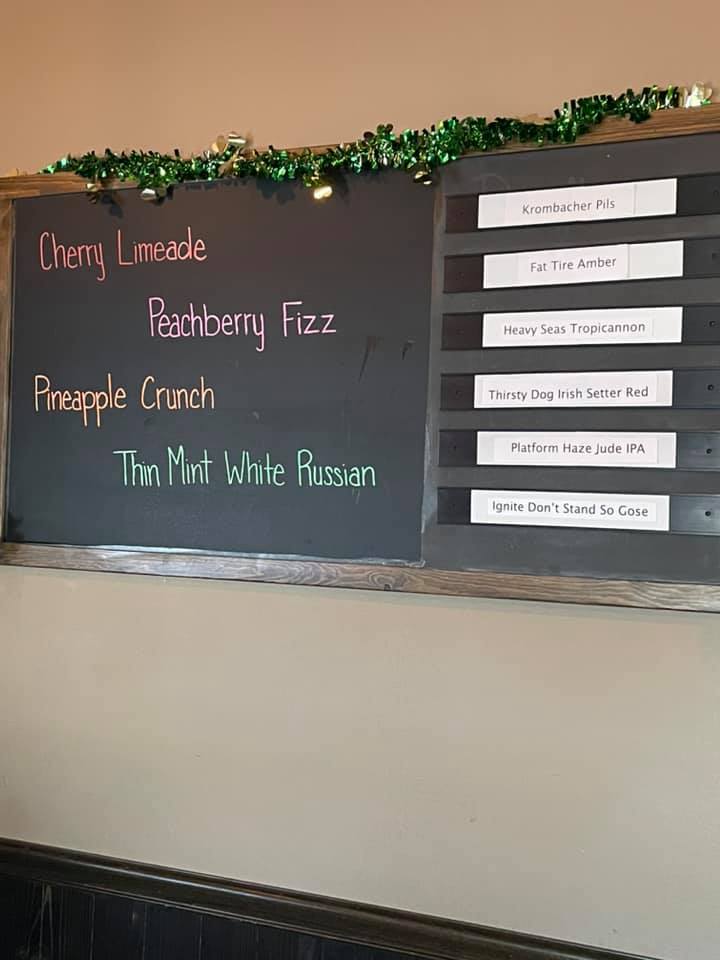 Cherry Limeade
Peachberry Fizz
Pineapple Crunch
Thin Mint White Russian
Krombacher Pils
Fat Tire Amber
Heavy Seas Tropicannon
Thirsty Dog Irish Setter Red
Platform Haze Jude IPA
Ignite Don't Stand So Gose